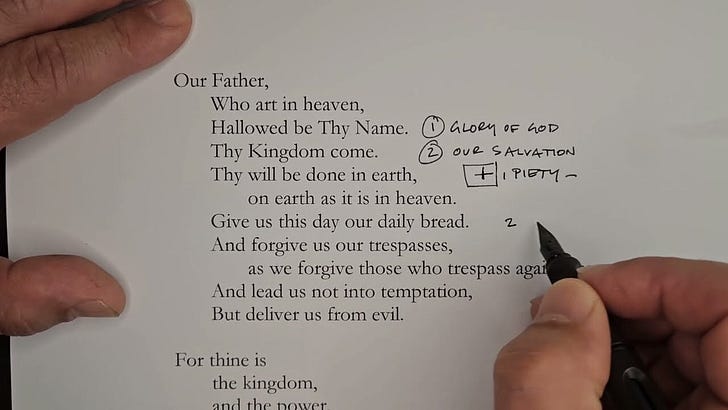 Our Father,
Who art in heaven,
Hallowed be Thy Name. ① GLORY OF GOD
Thy Kingdom come. ② OUR SALVATION
Thy will be done in earth, + 1 PIETY –
on earth as it is in heaven.
Give us this day our daily bread. 2
And forgive us our trespasses,
as we forgive those who trespass agai
And lead us not into temptation,
But deliver us from evil.
For thine is
the kingdom,
and the power